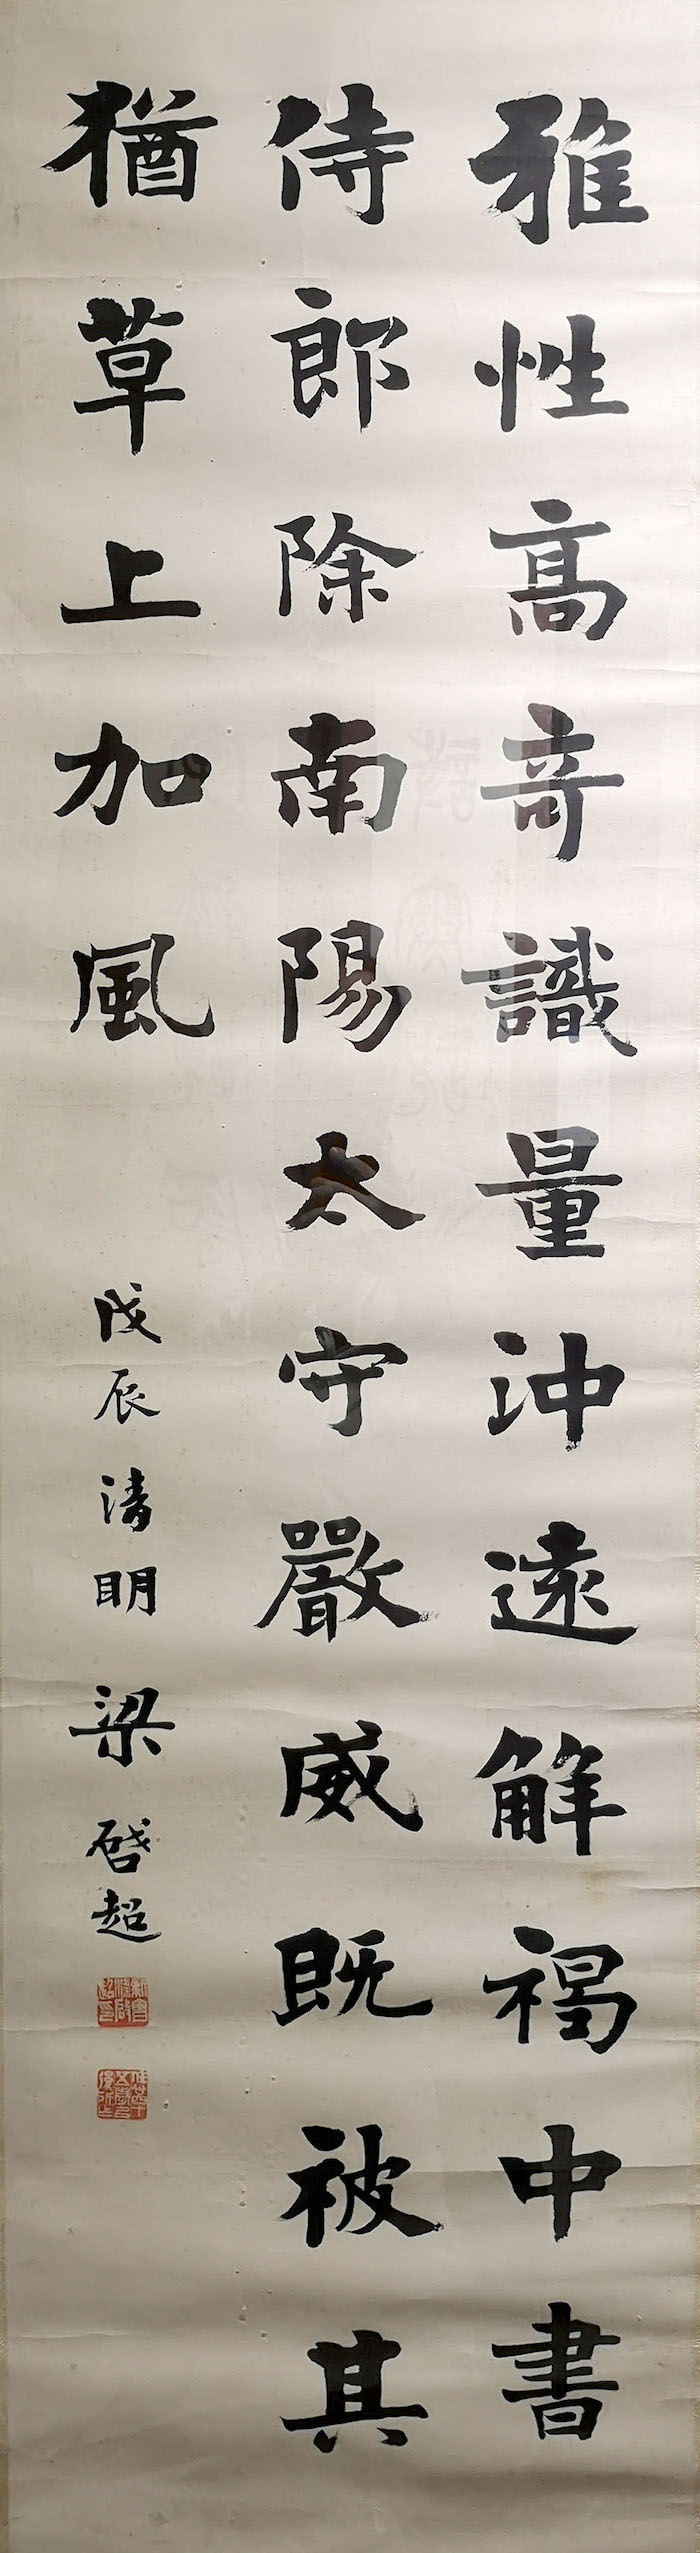 雅性高奇識量沖遠解褐中書
侍郎除南陽太守嚴威既被其
猶草上加風
戊辰清明 梁啓超